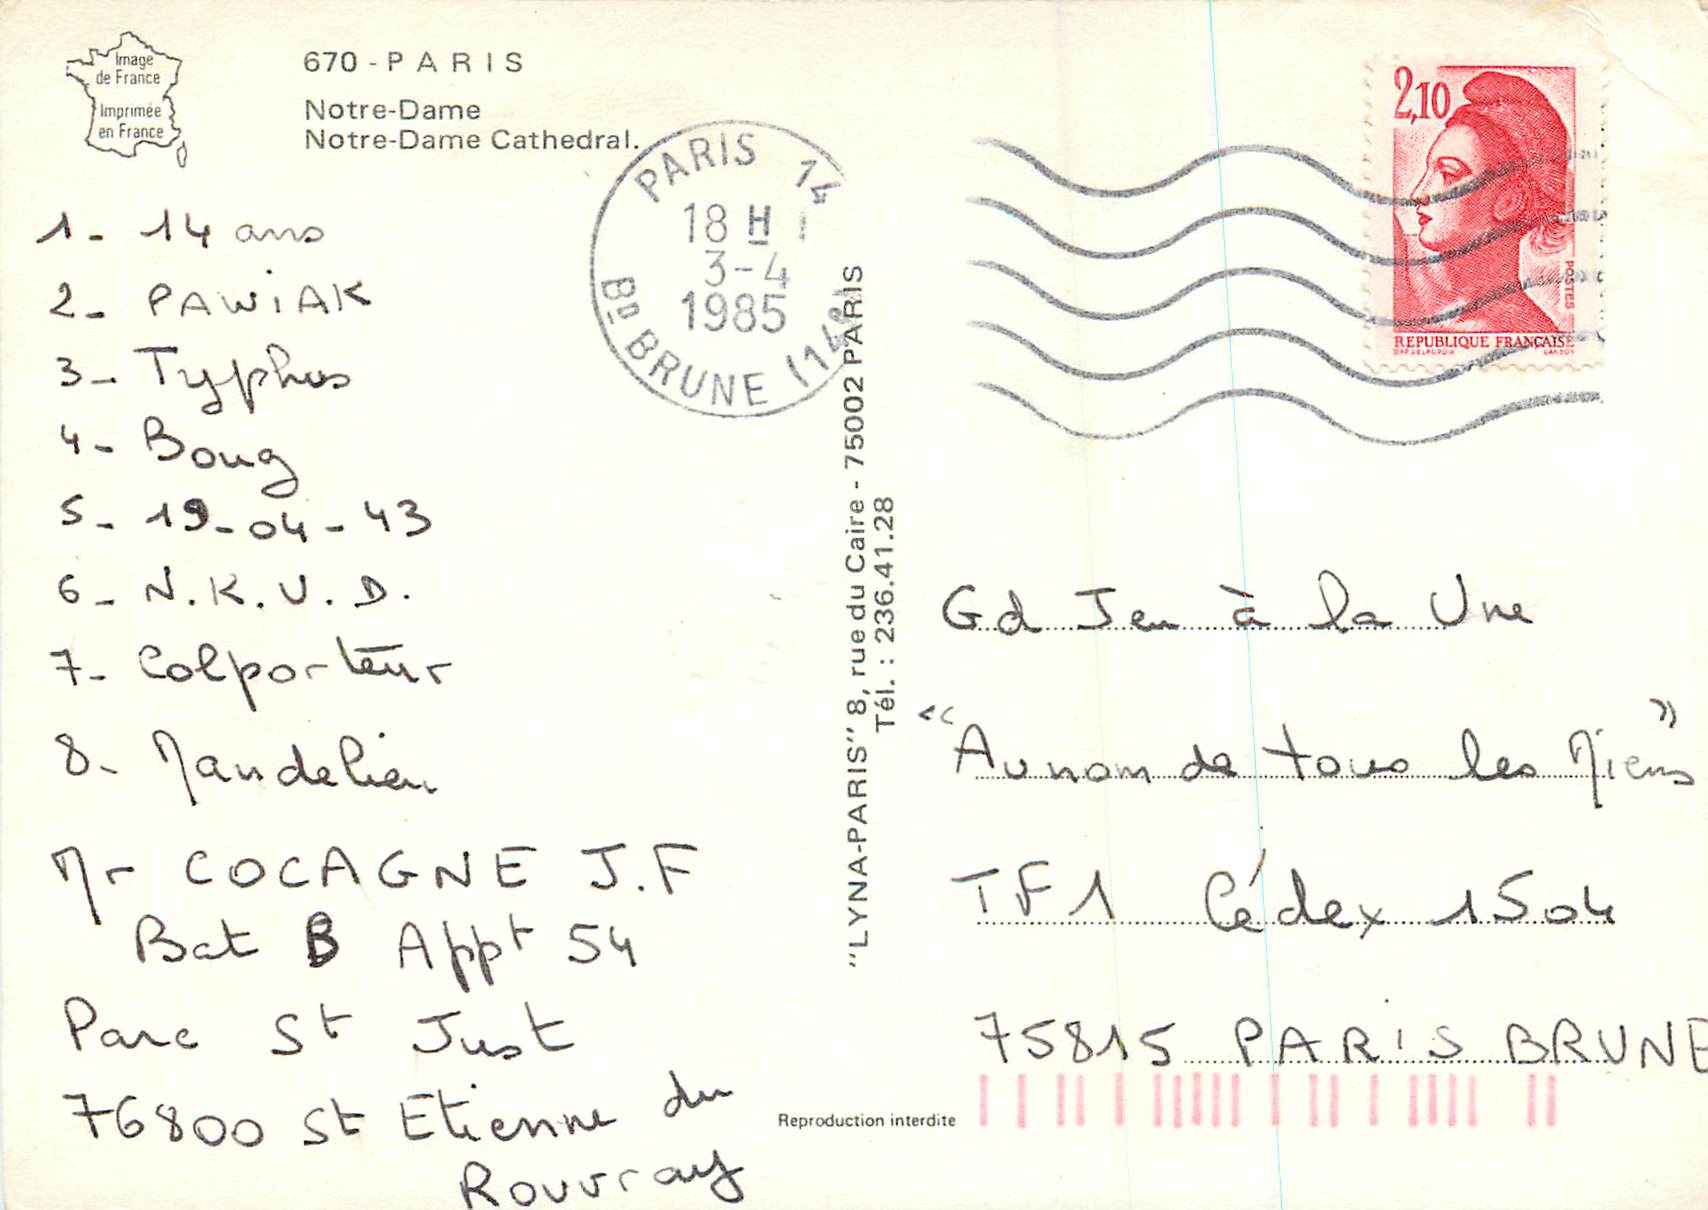 Image
de France
Imprimée
en France
670 - PARIS
Notre-Dame
Notre-Dame Cathedral.
PARIS 14
18 H
3-4
1985
BD BRUNE (14e)
2,10
POSTES
REPUBLIQUE FRANÇAISE
1- 14 ans
2- PAWiAK
3- Typhus
4- Boug
5- 19-04-43
6- N.K.V.D.
7- Colporteur
8- Mandelieu
Mr COCAGNE J.F
Bat B Appt 54
Parc St Just
76800 St Etienne du
Rouvray
"LYNA-PARIS" 8, rue du Caire - 75002 PARIS
Tél. : 236.41.28
Reproduction interdite
Gd Jeu à la Une
"Au nom de tous les Miens"
TF1 Cédex 1504
75815 PARIS BRUNE